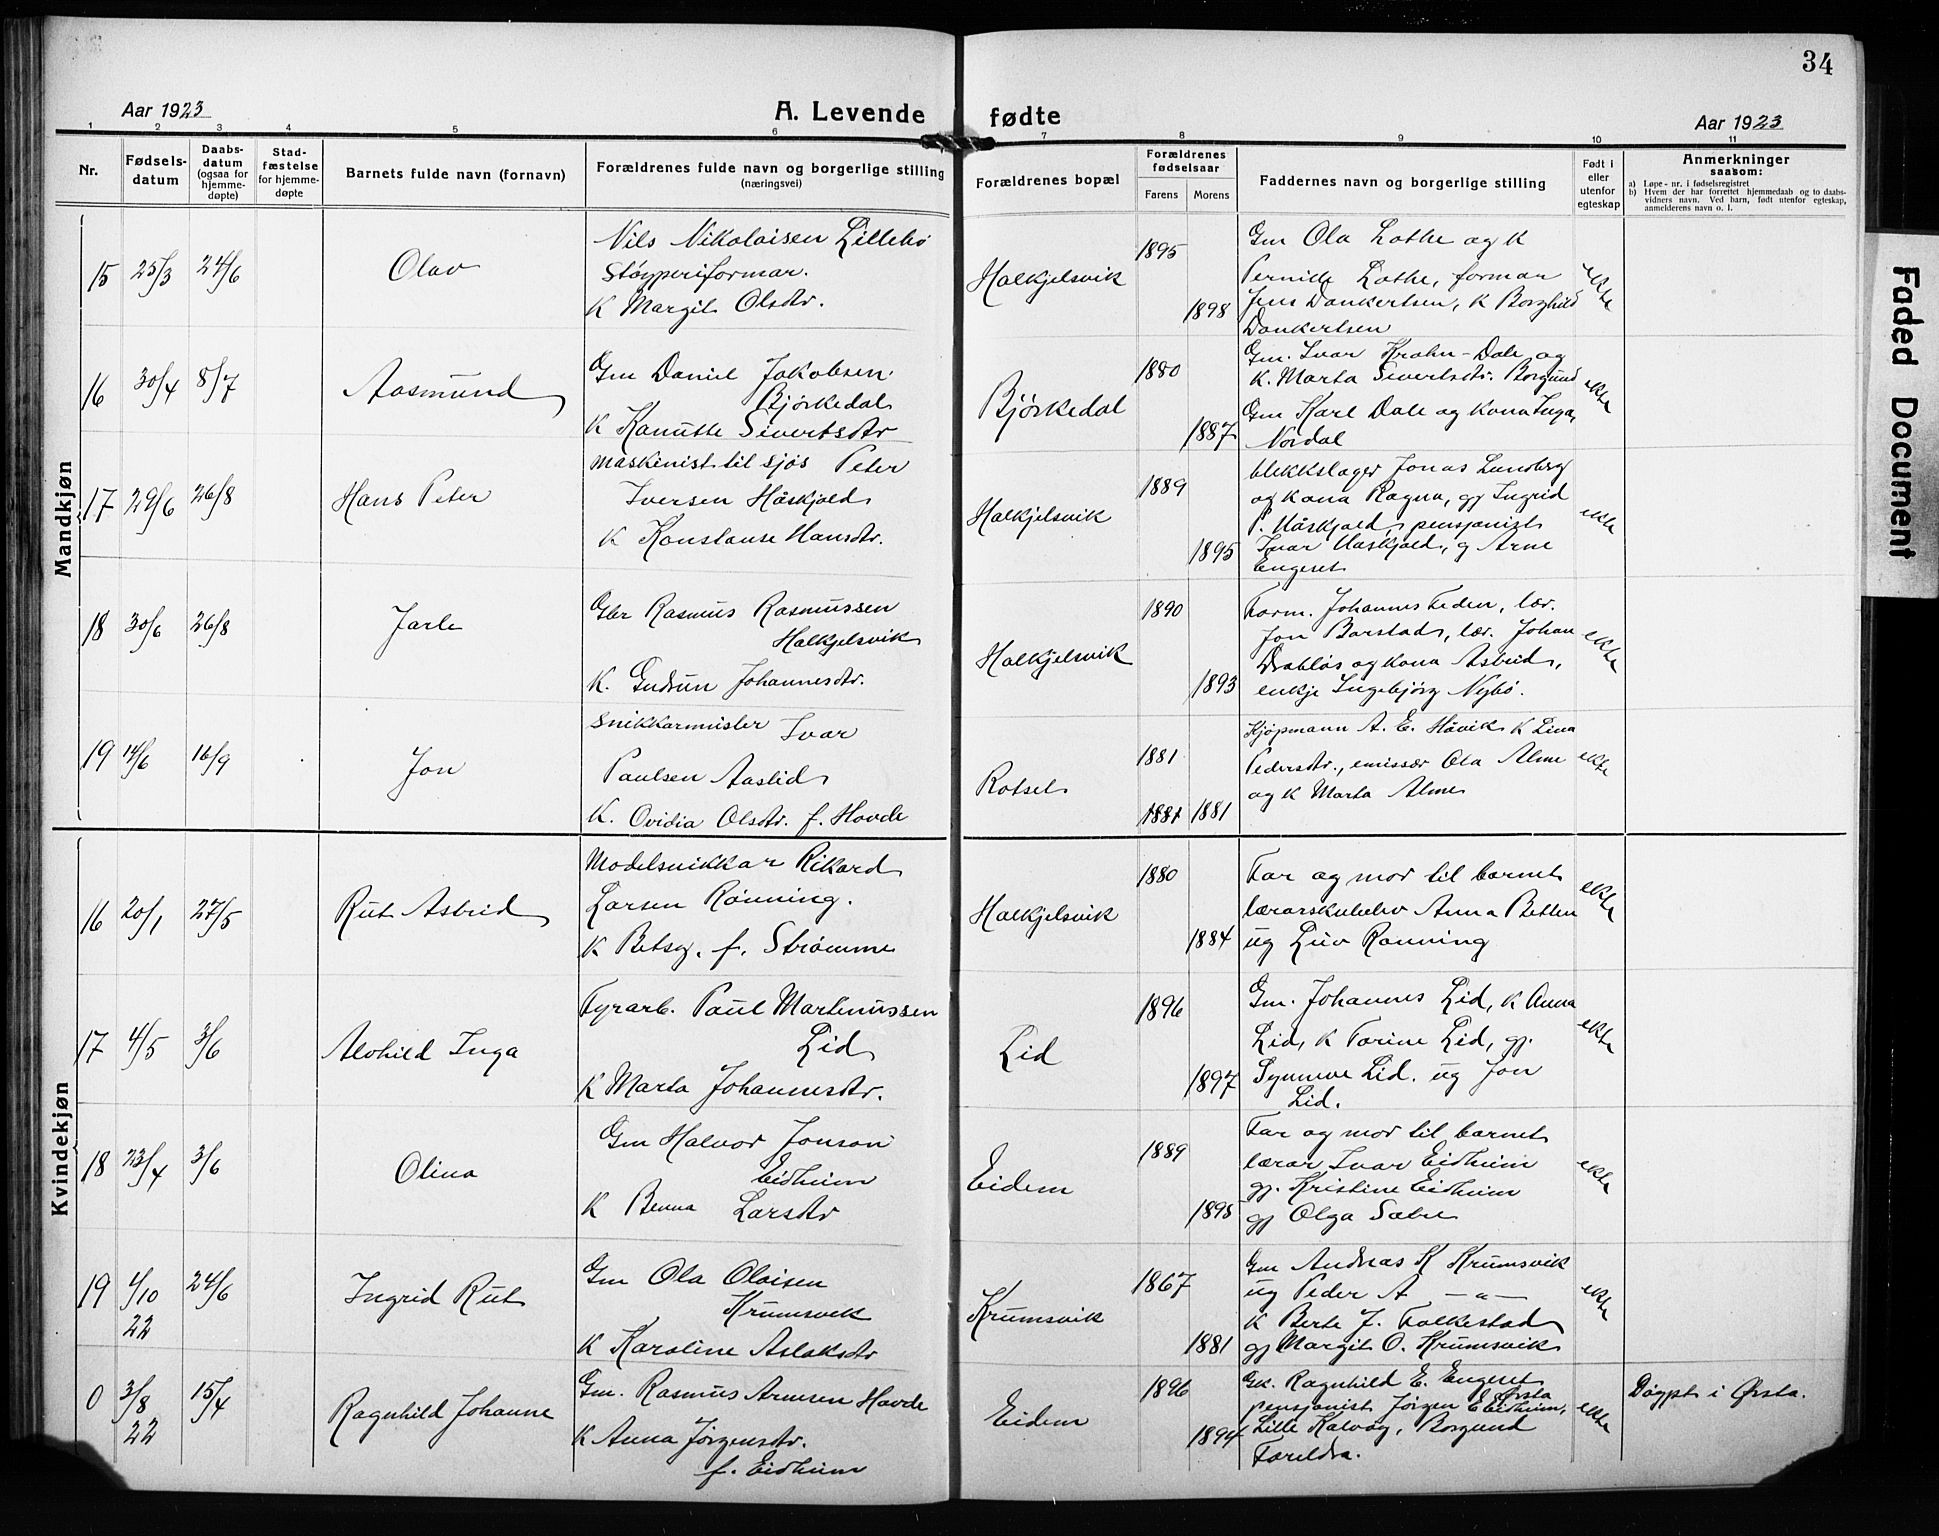 34
Aar 1923
A. Levende fødte
Aar 1923
1 2 3 4 5 6 7 8 9 10 11
Nr.
Fødsels-datum
Daabs-datum (ogsaa for hjemme-døpte)
Stad-fæstelse for hjemme-døpte
Barnets fulde navn (fornavn)
Forældrenes fulde navn og borgerlige stilling (næringsvei)
Forældrenes bopæl
Forældrenes fødselsaar
Farens
Morens
Faddernes navn og borgerlige stilling
Født i eller utenfor egteskap
Anmerkninger saasom:
a) Løpe-nr. i fødselsregistret
b) Hvem der har forrettet hjemmedaab og to daabs-vidners navn. Ved barn, født utenfor egteskap, anmelderens navn o. l.
Mandkjøn
15 25/3 24/6 Olav
Nils Nikolaisen Lillebø
Støyperiformar.
K Margit Olsdtr.
Halkjelsvik 1895 1898
Gm Ola Lothe og K
Pernille Lothe, forman
Jens Dankertsen, K Borghild
Dankertsen
ekte
16 30/4 8/7 Aasmund
Gm Daniel Jakobsen
Bjørkedal
K Kanutte Sivertsdtr
Bjørkedal 1880 1887
Gm. Ivar Krohn-Dale og
K. Marta Sivertsdtr. Borgund
Gm Karl Dale og kona Inga
Nordal
ekte
17 29/6 26/8 Hans Peter
Maskinist til sjøs Peter
Iversen Håskjold
K Konstanse Hansdtr.
Halkjelsvik 1889 1895
blekkslager Jonas Lundberg
og kona Ragna, gj Ingrid
P. Håskjold, pensjonist
Ivar Haskjold, g Arne
Engeset
ekte
18 30/6 26/8 Jarle
Gbr Rasmus Rasmussen
Halkjelsvik
K. Gudrun Johannesdtr.
Halkjelsvik 1890 1893
Form. Johannes Feden, lær.
Jon Barstad, lær. Johan
Drabløs og kona Astrid,
enkje Ingebjørg Nybø.
ekte
19 14/6 16/9 Jon
Snikkarmeister Ivar
Paulsen Aaslid
K. Ovidia Olsdtr. f. Hovde
Rotset 1881 1881 1881
Kjøpmann A. E. Håvik K Lina
Pedersdtr., emissær Ola Alme
og K Marta Alme
ekte
Kvindekjøn
16 20/1 27/5 Rut Astrid
Modelsnikkar Rikard
Larsen Rønning.
K Betsy, f. Strømme
Halkjelsvik 1880 1884
Far og mor til barnet
lærarskuleelev Anna Betten
ug Liv Rønning
ekte
17 4/5 3/6 Alvhild Inga
Fyrarb. Paul Martinussen
Lid
K Marta Johannesdtr.
Lid 1896 1897
Gm. Johannes Lid, K Anna
Lid, K Torine Lid, gj.
Synnøve Lid. ug Jon
Lid.
ekte
18 23/4 3/6 Olina
Gm Halvor Jonson
Eidheim
K Benna Larsdtr
Eidem 1889 1895
Far og mor til barnet
lærar Ivar Eidheim
gj. Kristine Eidheim
gj Olga Sætre
ekte
19 4/10 22 24/6 Ingrid Rut
Gm Ola Olaisen
Krumsvik
K Karoline Aslaksdtr
Krumsvik 1867 1881
Gm Andreas K Krumsvik
ug Peder A — " —
K Berte J. Folkestad
gj Margit O. Krumsvik
ekte
0 3/8 22 15/4 Ragnhild Johanne
Gm. Rasmus Arnesen Hovde
K Anna Jørgensdtr.
f. Eidheim
Eidem 1896 1894
Gk. Ragnhild E. Engeset
Ørsta
pensjonist Jørgen E Eidheim,
Lille Kalvøy, Borgund
Foreldra.
ekte
Døypt i Ørsta.
Faded Document